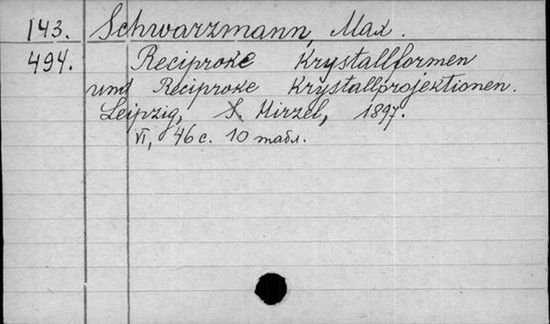 143. Schwarzmann, Max.
494. Reciproke Krystallformen
und Reciproke Krystallprojektionen.
Leipzig, S. Hirzel, 1897.
VI, 46 с. 10 табл.